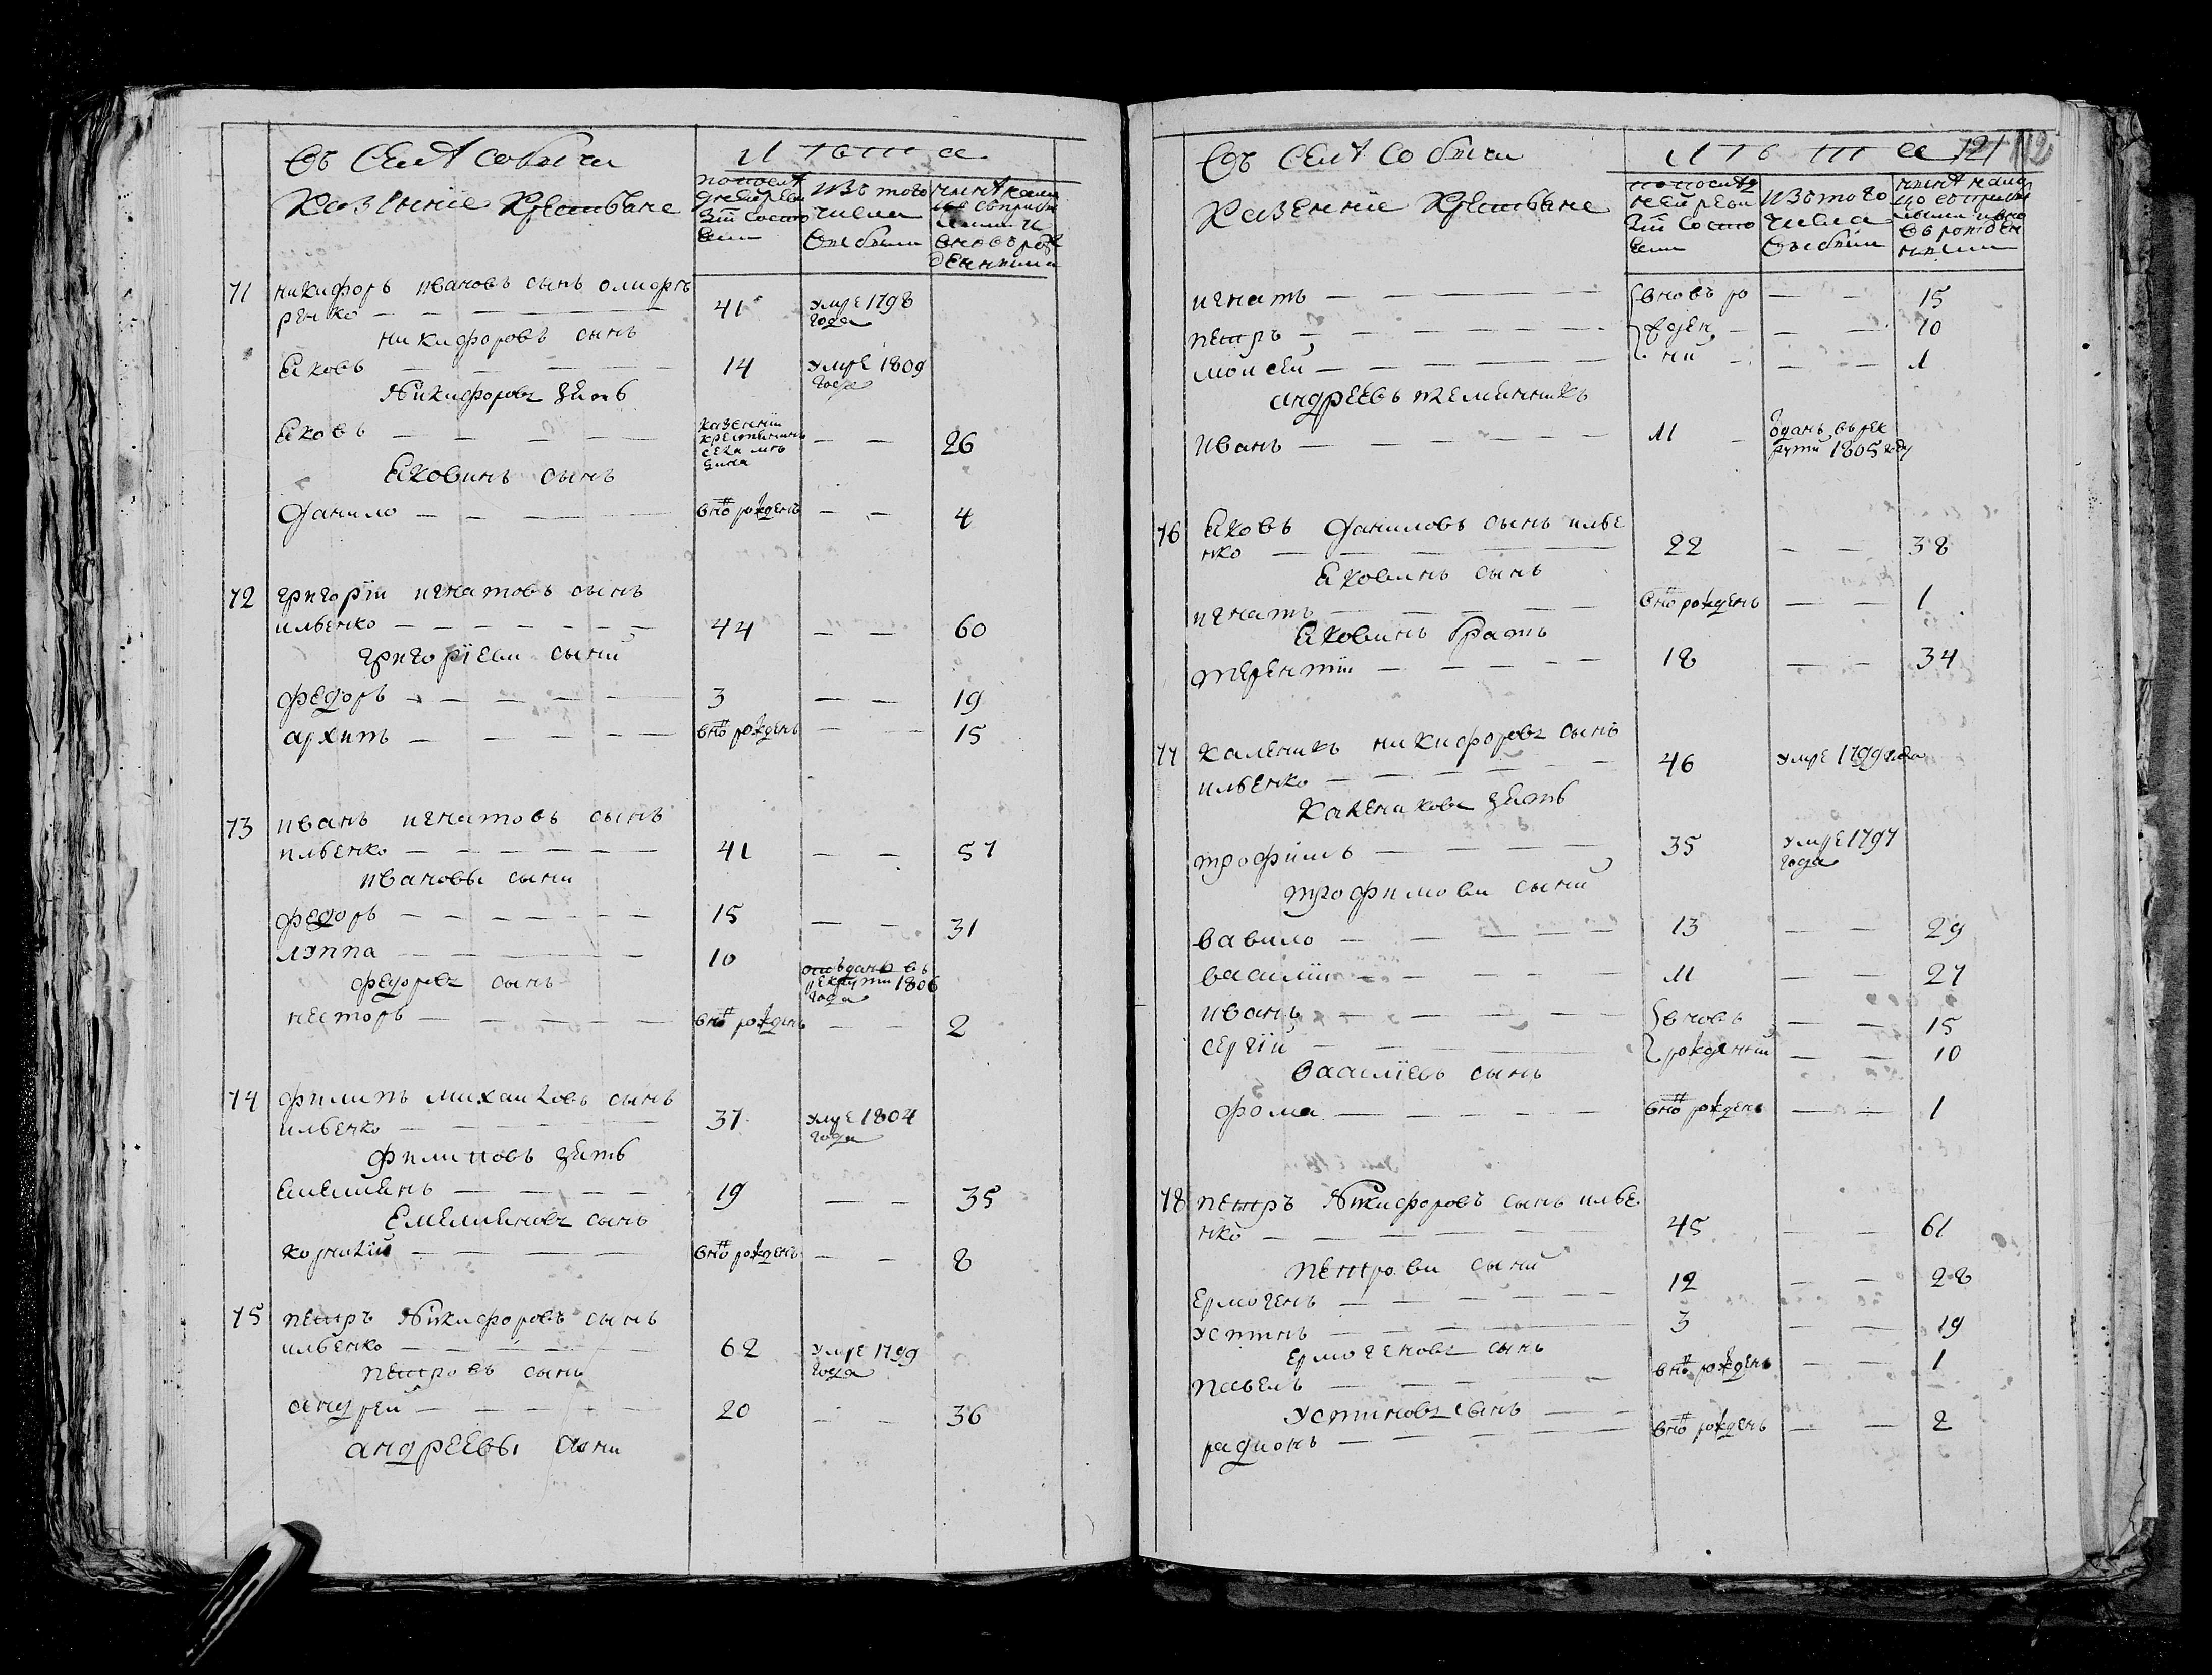 Въ Селѣ Собычи
Казеннiе Крестьяне
Лѣта
по послѣ
дней реви
зiи состо
яли
изъ того
числа
выбыли
нынѣ нали
цо съ прибы
лыми и
вновь рож
денными
71 никифоръ ивановъ сынъ олифѣ
ренко — 41 умре 1798
года
никифоровъ сынъ
Яковъ — 14 умре 1809
года
Никифоровъ зять
Яковъ — казеннiй
крестьянинъ
села
— — 26
Яковинъ сынъ
Данило — внѡ рожденъ — — 4
72 григорiи игнатовъ сынъ
ильенко — 44 — — 60
григорiеви сыни
федоръ — 3 — — 19
архипъ — внѡ рожденъ — — 15
73 иванъ игнатовъ сынъ
ильенко — 41 — — 57
ивановы сыни
федоръ — 15 — — 31
лэппа — 10 отъданъ въ
рекруты 1806
года
федоровъ сынъ
несторъ — внѡ рожденъ — — 2
74 филипъ михайловъ сынъ
ильенко — 37 умре 1804
года
филиповъ зять
Емелиянъ — 19 — — 35
Емелияновъ сынъ
корнилiй — внѡ рожденъ — — 8
75 петръ Никифоровъ сынъ
ильенко — 62 умре 1799
года
петровъ сынъ
андрей — 20 — — 36
андреевы сыни
Въ Селѣ Собычи
Казеннiе Крестьяне
Лѣта 121 112
по послѣд
ней реви
зiи состо
яли
изъ того
числа
выбыли
нынѣ нали
цо съ прибы
лыми и вно
въ рожден
ными
игнатъ — вновь ро — — 15
петръ — жден — — 10
моисей — нiй — — 1
андреевъ племянникъ
Иванъ — 11 одданъ въ рек
руты 1805 году
76 Яковъ Даниловъ сынъ илье
нко — 22 — — 38
Яковинъ сынъ
игнатъ — внѡ рожденъ — — 1
Яковинъ братъ
терентiи — 18 — — 34
77 каленикъ никифоровъ сынъ
ильенко — 46 умре 1799 года
Калениковъ зять
трофимъ — 35 умре 1797
года
трофимови сыни
вавило — 13 — — 29
василiи — 11 — — 27
иванъ — вновь — — 15
сергiй — рожденнiй — — 10
василiевъ сынъ
фома — внѡ рожденъ — — 1
78 петръ Никифоровъ сынъ илье
нко — 45 — — 61
петрови сыни
Ермогенъ — 12 — — 28
устинъ — 3 — — 19
Ермогеновъ сынъ
павелъ — внѡ рожденъ — — 1
устиновъ сынъ —
радионъ — внѡ рожденъ — — 2